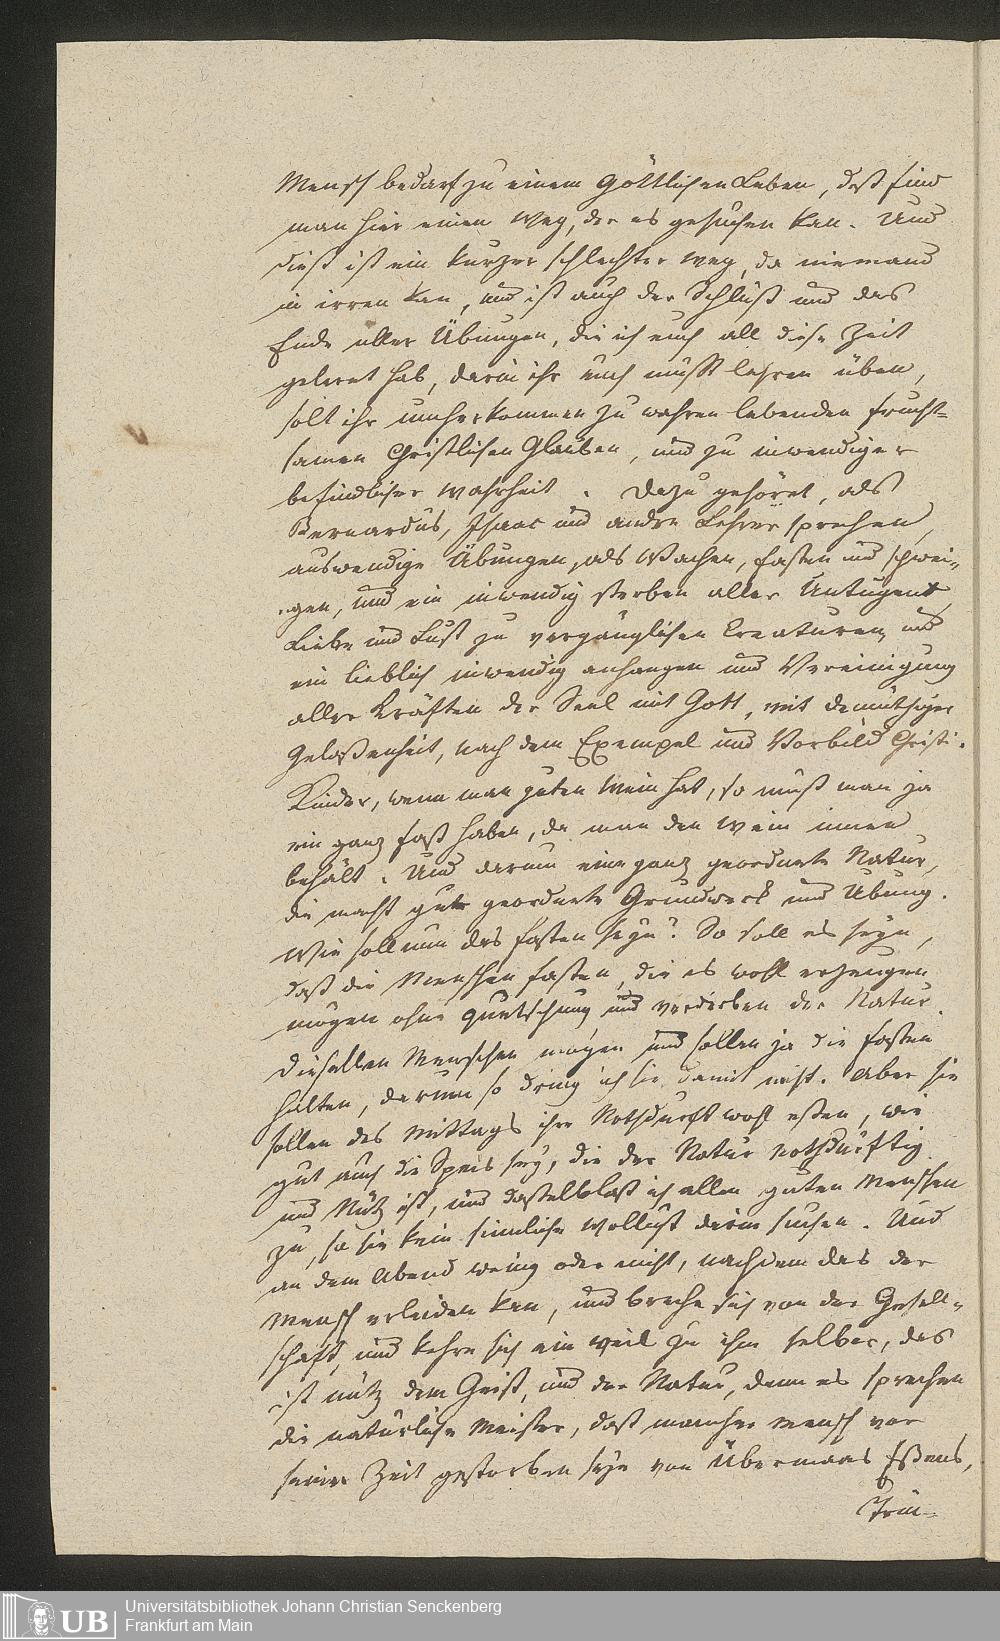 Mensch bedarf zu einem göttlichen Leben, deß find
man hier einen Weg, der es gesuchen kan. Und
dieß ist ein kurzer schlechter Weg, da niemand
in irren kan, und ist auch der Schluß und das
Ende aller Übungen, die ich euch all diese Zeit
gelernt hab, darin ihr euch müsst lehren üben,
solt ihr umher kommen zu wahren lebenden frucht=
samen Christlichen Glauben, und zu inwendiger
befindlicher Wahrheit. Dazu gehöret, als
Bernardus, Isaac und andre Lehrer sprechen,
auswendige Übungen, als Wachen, fasten und schwei„
„gen, und ein inwendig sterben aller Untugent,
Liebe und Lust zu vergänglichen Creaturen, und
ein lieblich inwendig anhangen und Vereinigung
aller Kräften der Seel mit Gott, mit demüthiger
Gelaßenheit, nach dem Exempel und Vorbild Christi.
Kinder, wenn man guten Wein hat, so muß man ja
ein ganz faß haben, da man den Wein innen
behält. Und darum eine ganz geordnete Natur,
die macht gute geordnete Grundwerk und Übung.
Wie soll nun das fasten seyn? So soll es seyn,
daß die Menschen fasten, die es wohl erzeugen
mögen ohne quetschung und verderben der Natur.
Dieselben Menschen mögen und sollen ja die fasten
halten, darum so dring ich sie damit nicht. Aber sie
sollen des Mittags ihre Nothdurft wohl eßen, wie
gut auch die Speis sey, die der Natur nothdürftig
und Nütz ist, und dasselb laß ich allen guten Menschen
zu, so sie kein sinnliche Wollust darin suchen. Und
an dem Abend wenig oder nicht, nachdem das der
Mensch erleiden kan, und breche sich von der Gesell„
schaft, und kehre sich ein weil zu ihm selber, das
ist nütz dem Geist, und der Natur, denn es sprechen
die natürliche Meister, daß mancher Mensch vor
seiner Zeit gestorben seye von Übermaas Eßens,
Trin-
Universitätsbibliothek Johann Christian Senckenberg
Frankfurt am Main
UB